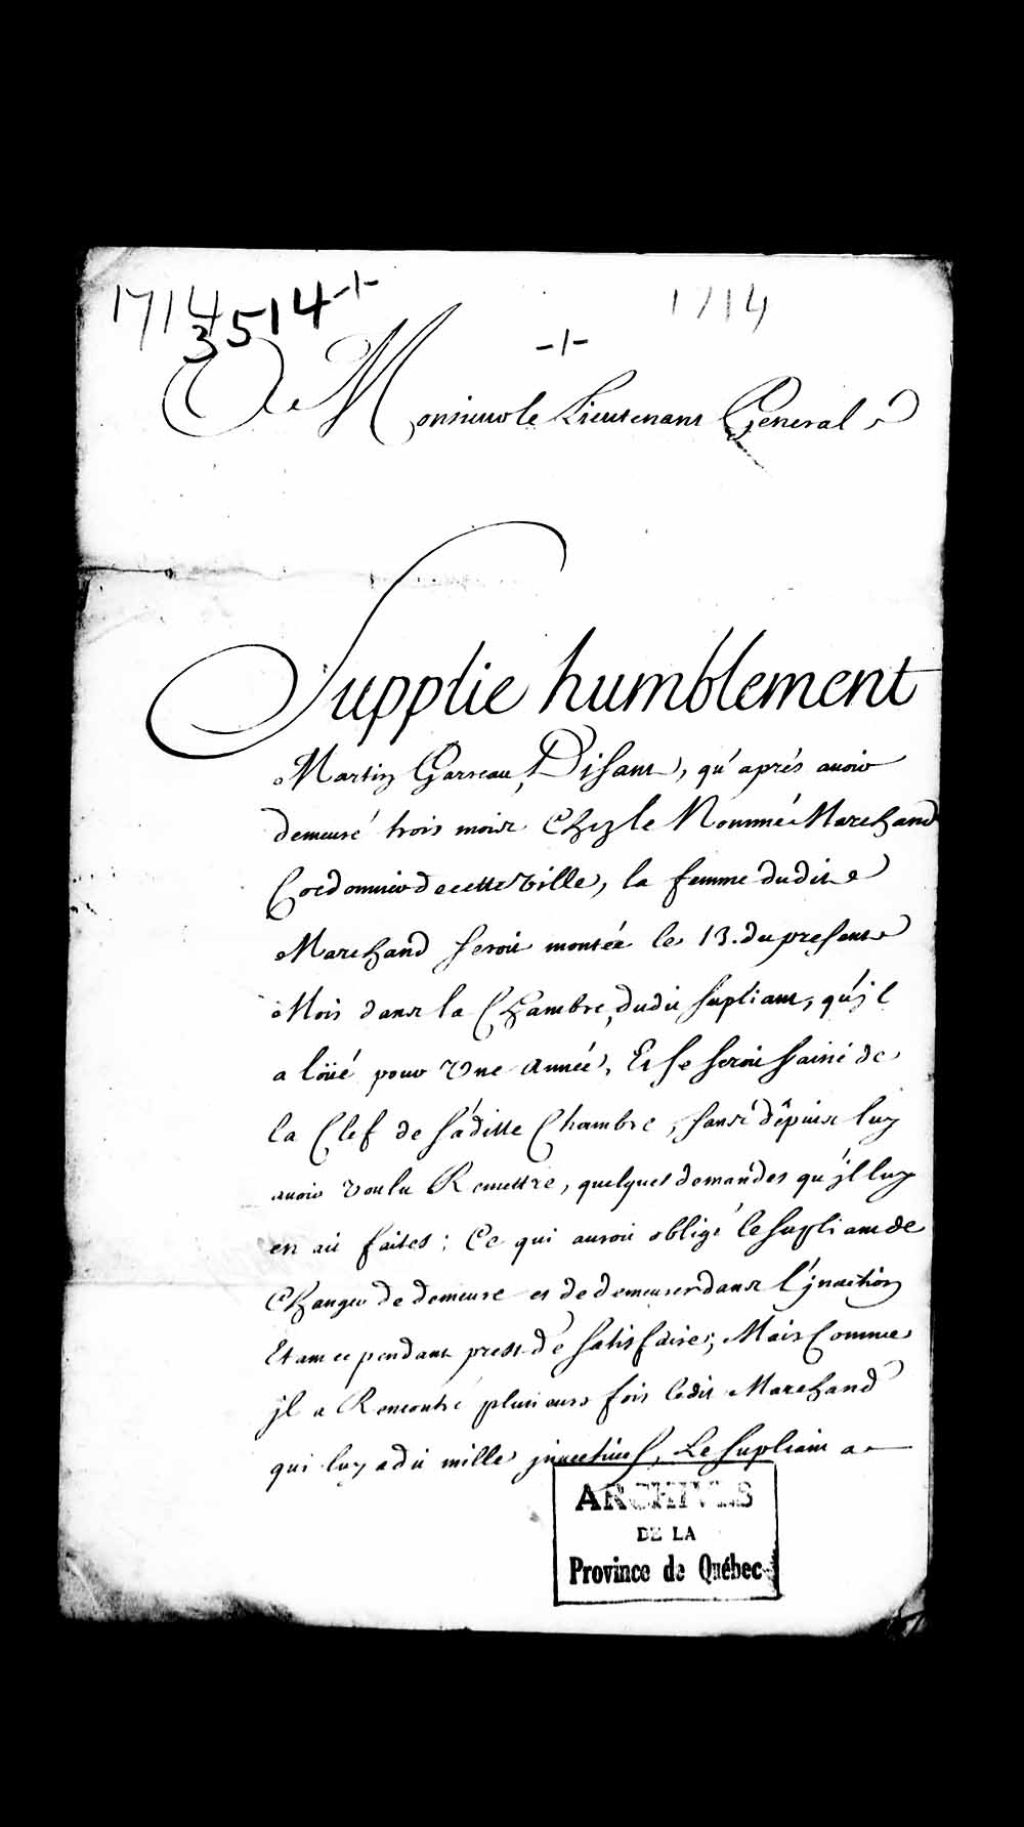 1714
3514 -/-
1714
-/-
A Monsieur le Lieutenant General
Supplie humblement
Martin Garreau, Disant, qu'aprés auoir
demeuré trois mois Chez le Nommé Marchand
Cordonnier de cette ville, la femme dudit
Marchand seroit montée le 13. du present
Mois dans la Chambre dudit supliant, qu'jl
a loüé pour vne année, Et se seroit saisié de
la Clef de sa ditte Chambre, sans dêpuis luy
auoir voulu Remettre, quelques demandes qu'jl luy
en ait faites; Ce qui auroit obligé le supliant de
Changer de demeure et de demeurer dans l'jnaction
Etant cependant prest de satisfaire; Mais Comme
jl a Rencontré plusieurs fois ledit Marchand
qui luy a dit mille jnuectiues, Le supliant a
ARCHIVES
DE LA
Province de Québec